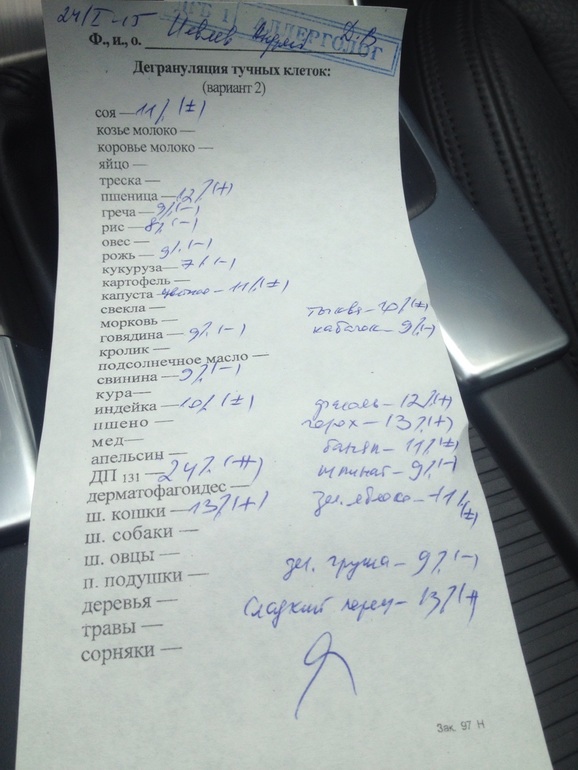 24/I-15
АЛЛЕРГОЛОГ
Ф., и., о. Андрей Д.В
Дегрануляция тучных клеток:
(вариант 2)
соя — 11% (±)
козье молоко —
коровье молоко —
яйцо —
треска —
пшеница — 12% (+)
греча — 9% (-)
рис — 8% (-)
овес —
рожь — 9% (-)
кукуруза — 7% (-)
картофель —
капуста цветная - 11% (±)
свекла — тыква - 10% (±)
морковь — кабачок - 9% (-)
говядина — 9% (-)
кролик —
подсолнечное масло —
свинина — 9% (-)
кура —
индейка — 10% (±) фасоль - 12% (+)
пшено — горох - 13% (+)
мед — банан - 11% (±)
апельсин — шпинат - 9% (-)
ДП 131 — 24% (++)
дерматофагоидес — зел. яблоко - 11% (±)
ш. кошки — 13% (+)
ш. собаки —
ш. овцы — зел. груша - 9% (-)
п. подушки —
деревья — Сладкий перец - 13% (+)
травы —
сорняки —
Зак. 97 Н